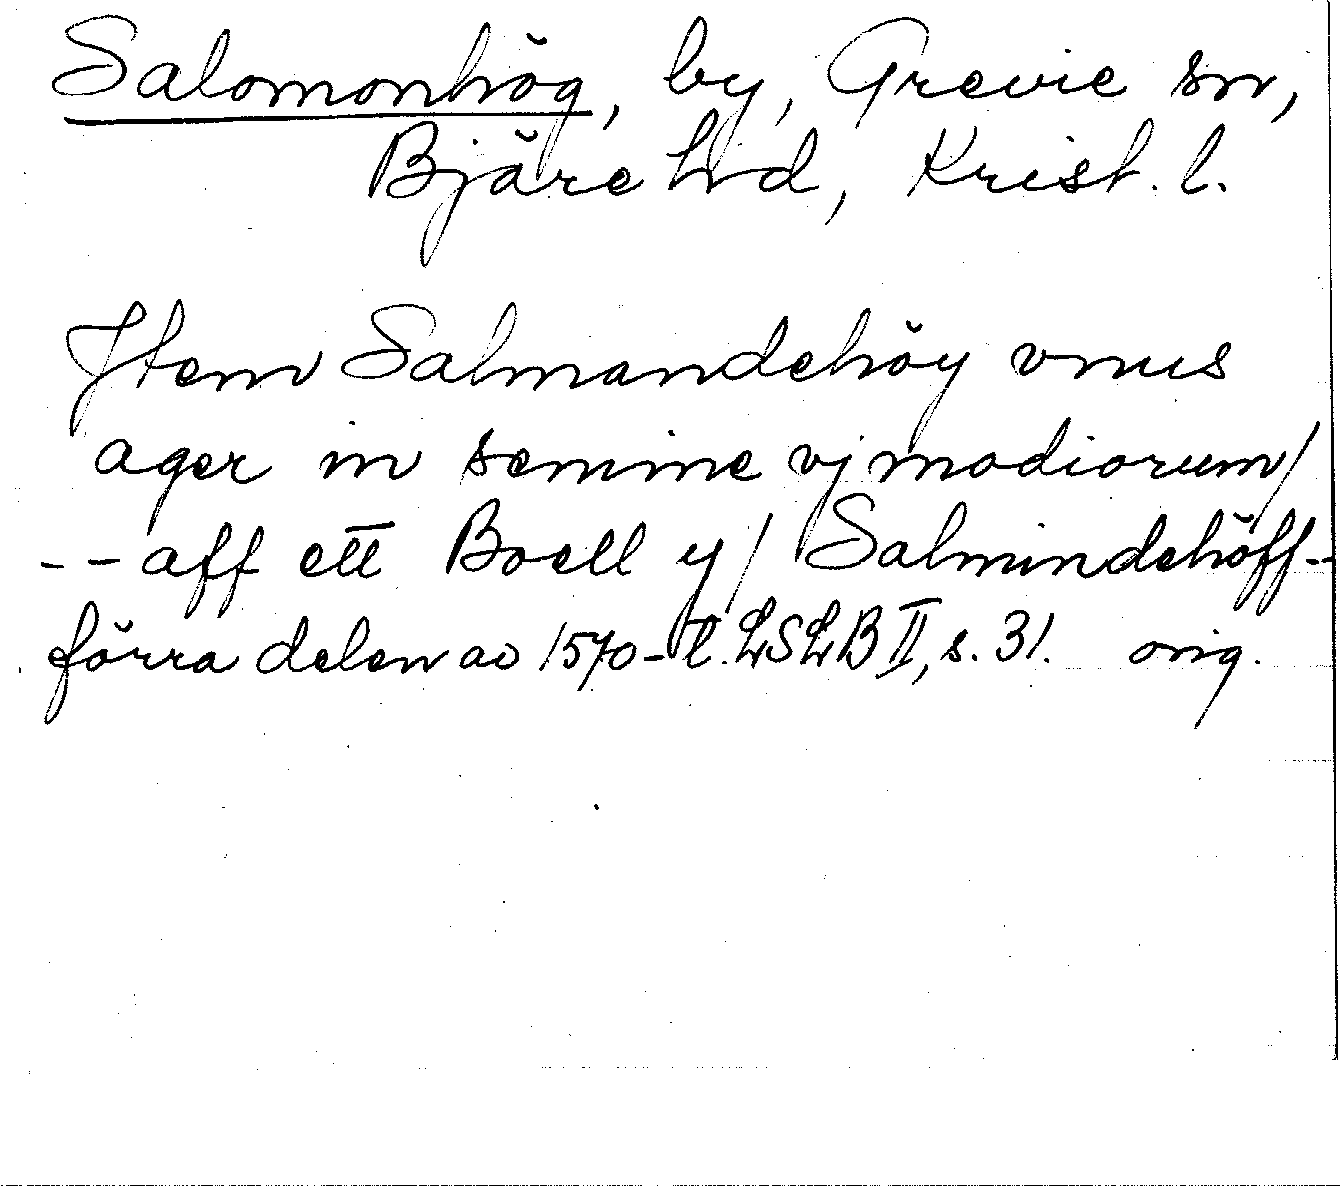 Salomonhög, by, Grevie sn,
Bjäre hd, Krist. l.
Item Salmandehöy vnus
ager in semine vj modiorum/
-- aff ett Boell y/ Salmindehöff--
förra delen av 1570-t. LSLB II, s. 31. orig.